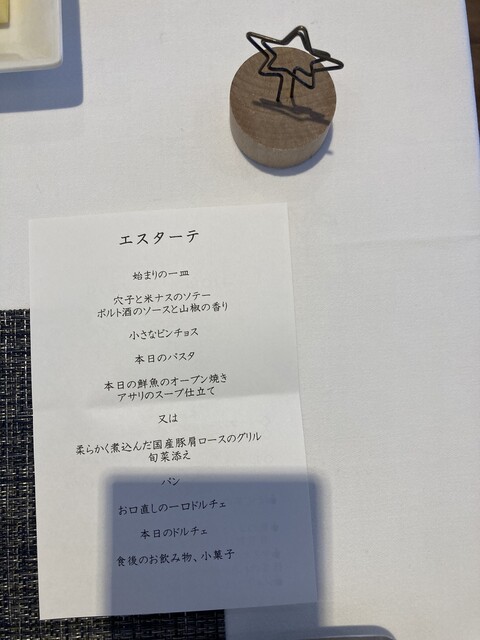 エスターテ
始まりの一皿
穴子と米ナスのソテー
ポルト酒のソースと山椒の香り
小さなピンチョス
本日のパスタ
本日の鮮魚のオーブン焼き
アサリのスープ仕立て
又は
柔らかく煮込んだ国産豚肩ロースのグリル
旬菜添え
パン
お口直しの一口ドルチェ
本日のドルチェ
食後のお飲み物、小菓子